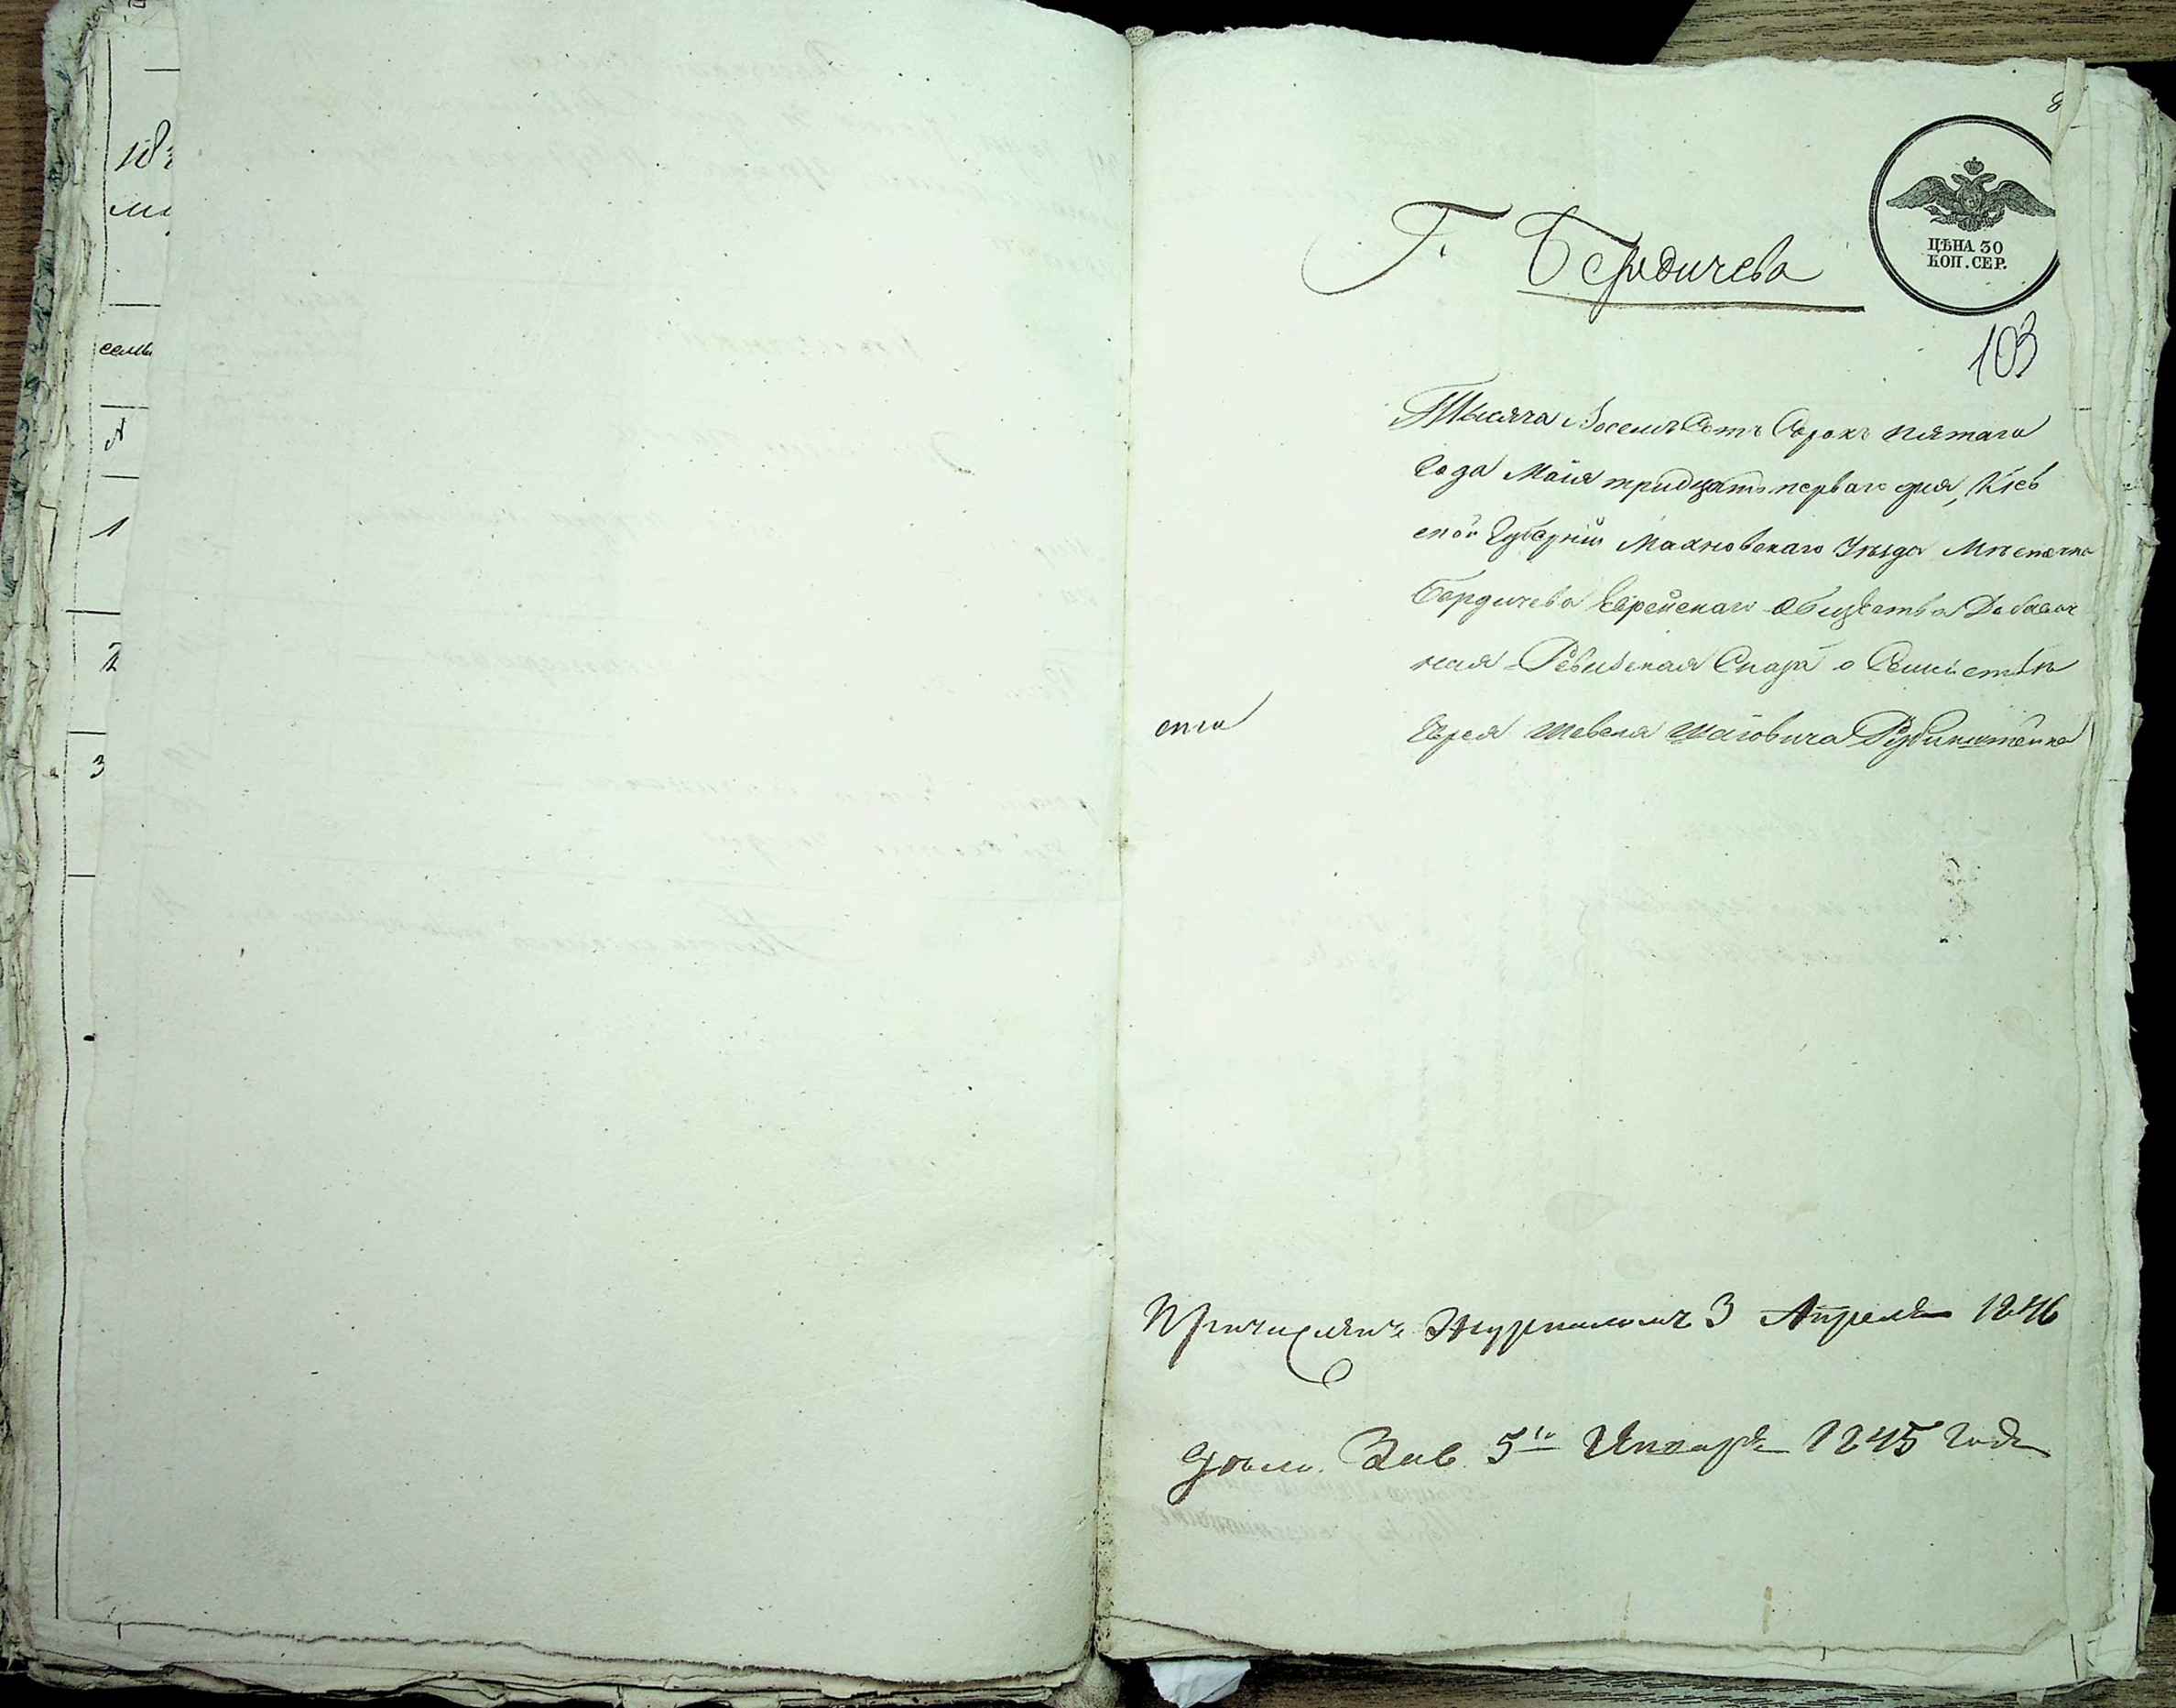 183
ми
семь
1
2
3
8
ЦѢНА 30
КОП. СЕР.
Г. Бердичева
103
Тысяча Восемъ Сотъ Сорокъ пятаго
Года Маія тридцать перваго дня, Кіев
ской Губерніи Махновскаго Уѣзда Мѣстечка
Бердичева Еврейскаго Общества Добавоч
ная Ревизская Сказка о Семействѣ
Еврея Шевеля Шаіовича Рубинштейна
Причисленъ Журналомъ 3 Апреля 1846
5го Января 1845 Года